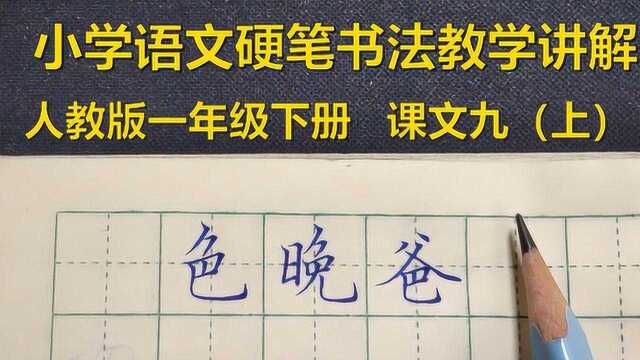 小学语文硬笔书法教学讲解
人教版一年级下册 课文九（上）
色晚爸